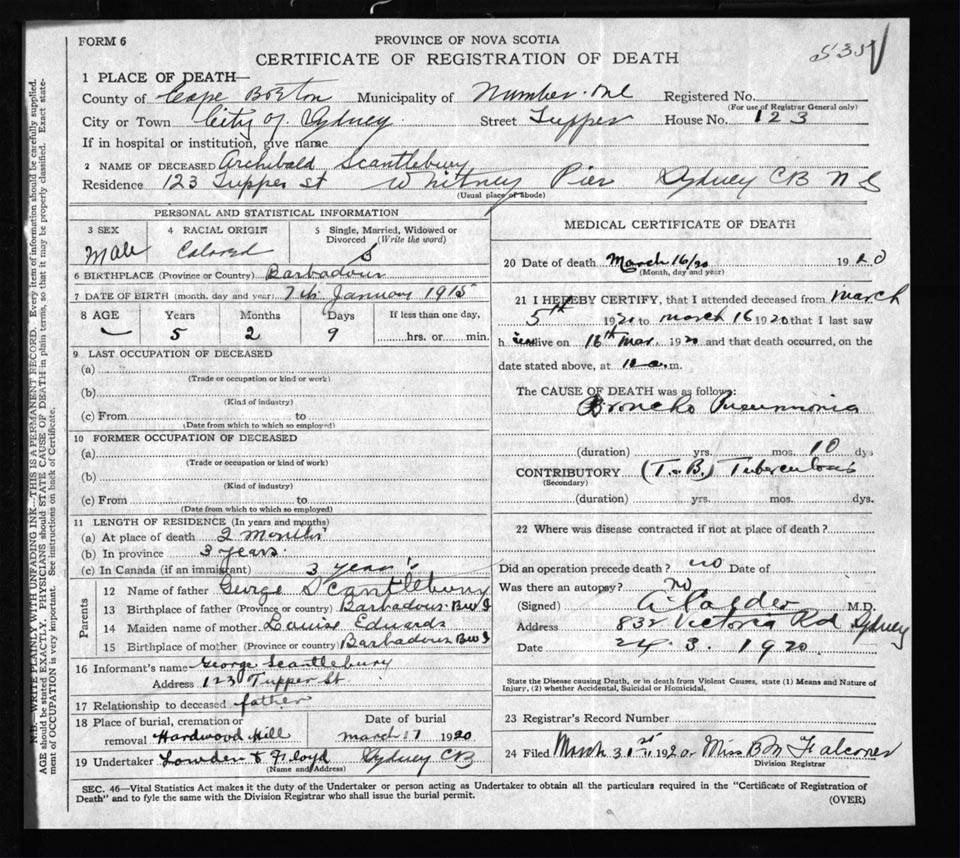 FORM 6
PROVINCE OF NOVA SCOTIA
CERTIFICATE OF REGISTRATION OF DEATH
535
1 PLACE OF DEATH—
County of Cape Breton Municipality of Number one Registered No.
(For use of Registrar General only)
City or Town City of Sydney Street Tupper House No. 123
If in hospital or institution, give name
2 NAME OF DECEASED Archibald Scantlebury
Residence 123 Tupper St Whitney Pier Sydney CB NS
(Usual place of abode)
PERSONAL AND STATISTICAL INFORMATION
3 SEX
Male
4 RACIAL ORIGIN
Colored
5 Single, Married, Widowed or Divorced (Write the word)
S
6 BIRTHPLACE (Province or Country) Barbadous
7 DATE OF BIRTH (month, day and year) 7th January 1915
8 AGE Years Months Days If less than one day,
5 2 9 hrs. or min.
9 LAST OCCUPATION OF DECEASED
(a)
(Trade or occupation or kind or work)
(b)
(Kind of industry)
(c) From to
(Date from which to which so employed)
10 FORMER OCCUPATION OF DECEASED
(a)
(Trade or occupation or kind of work)
(b)
(Kind of industry)
(c) From to
(Date from which to which so employed)
11 LENGTH OF RESIDENCE (In years and months)
(a) At place of death 2 Months
(b) In province 3 years.
(c) In Canada (if an immigrant) 3 years
Parents
12 Name of father George Scantlebury
13 Birthplace of father (Province or country) Barbadous BWI
14 Maiden name of mother Louise Edwards
15 Birthplace of mother (Province or country) Barbadous BWI
16 Informant's name George Scantlebury
Address 123 Tupper St
17 Relationship to deceased father
18 Place of burial, cremation or removal Hardwood Hill
Date of burial
March 17 1920
19 Undertaker Lowden & Floyd Sydney CB
(Name and Address)
MEDICAL CERTIFICATE OF DEATH
20 Date of death March 16/20 1920
(Month, day and year)
21 I HEREBY CERTIFY, that I attended deceased from March
5th 1920 to March 16 1920 that I last saw
h im alive on 16th Mar. 1920 and that death occurred, on the
date stated above, at 10 a.m.
The CAUSE OF DEATH was as follows:
Broncho Pneumonia
(duration) yrs. mos. 10 dys
CONTRIBUTORY (T.B.) Tuberculous
(Secondary)
(duration) yrs. mos. dys.
22 Where was disease contracted if not at place of death?
Did an operation precede death? no Date of
Was there an autopsy? no
(Signed) A Calder M.D.
Address 832 Victoria Rd Sydney
Date 24. 3. 1920.
State the Disease causing Death, or in death from Violent Causes, state (1) Means and Nature of
Injury, (2) whether Accidental, Suicidal or Homicidal.
23 Registrar's Record Number
24 Filed March 31st 1920 Miss B M Falconer
Division Registrar
SEC. 46—Vital Statistics Act makes it the duty of the Undertaker or person acting as Undertaker to obtain all the particulars required in the "Certificate of Registration of
Death" and to fyle the same with the Division Registrar who shall issue the burial permit.
(OVER)
N.B. WRITE PLAINLY WITH UNFADING INK—THIS IS A PERMANENT RECORD. Every item of information should be carefully supplied.
AGE should be stated EXACTLY. PHYSICIANS should STATE CAUSE OF DEATH in plain terms, so that it may be properly classified. Exact state-
ment of OCCUPATION is very important. See instructions on back of Certificate.